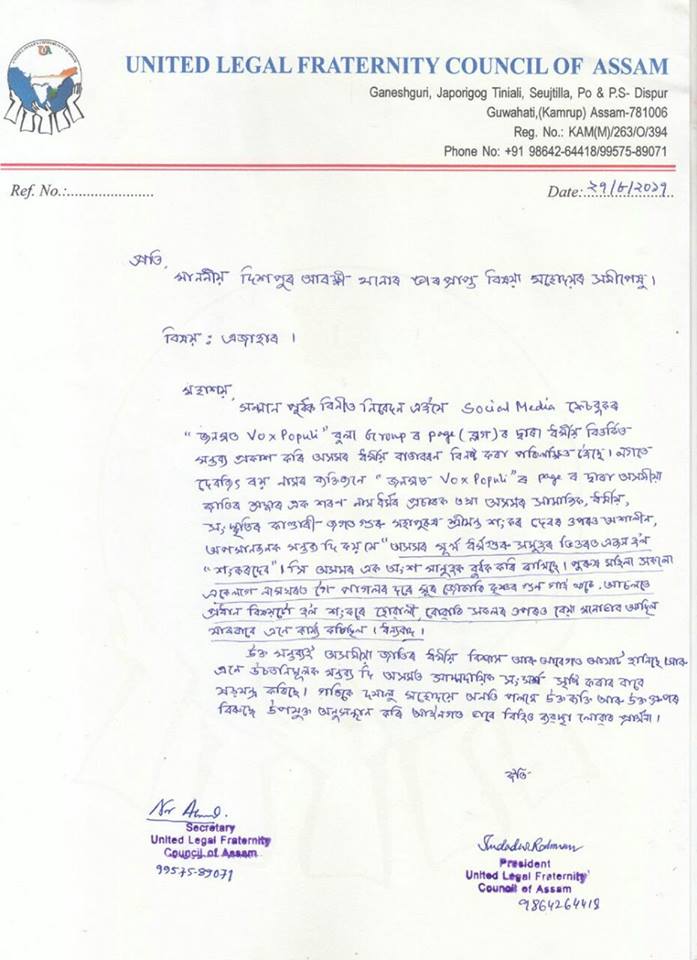 UNITED LEGAL FRATERNITY COUNCIL OF ASSAM
Ganeshguri, Japorigog Tiniali, Seujtilla, Po & P.S- Dispur
Guwahati,(Kamrup) Assam-781006
Reg. No.: KAM(M)/263/O/394
Phone No: +91 98642-64418/99575-89071
Ref. No.:......................
Date: ২৭/৮/২০১৭
প্ৰতি,
মাননীয় দিশপুৰ আৰক্ষী থানাৰ ভাৰপ্ৰাপ্ত বিষয়া মহোদয়ৰ সমীপেষু।
বিষয় : এজাহাৰ ।
মহাশয়,
সন্মান পূৰ্বক বিনীত নিবেদন এইযে Social Media ফেচবুকৰ
"জনমত Vox Populi" বুলা Group ৰ page ( ) ৰ দ্বাৰা ধৰ্মীয় বিতৰ্কিত
মন্তব্য প্ৰকাশ কৰি অসমৰ ধৰ্মীয় বাতাবৰণ বিনষ্ট কৰা পৰিলক্ষিত হৈছে। লগতে
দেৱজিৎ নামৰ ব্যক্তিজনে "জনমত Vox Populi" ৰ page ৰ দ্বাৰা অসমীয়া
জাতিৰ এক শৰণ নাম ধৰ্মৰ প্ৰচাৰক তথা অসমৰ সামাজিক, ধৰ্মীয়,
সংস্কৃতিৰ কাণ্ডাৰী জগতগুৰু মহাপুৰুষ শ্ৰীমন্ত শংকৰ দেৱৰ ওপৰত অশালীন,
অপমানজনক মন্তব্য দি কয় যে "অসমৰ ধৰ্মগুৰু সমূহৰ ভিতৰত এজন হ'ল
"শংকৰদেৱ"। সি অসমৰ এক অংশ মানুহক ৰাখিছে। পুৰুষ মহিলা সকলো
একেলগে নামঘৰত গৈ পাগলৰ দৰে গুন গাই থাকে। আচলতে
প্ৰধান বিষয়টো হ'ল শংকৰে ছোৱালী, বোৱাৰী সকলৰ ওপৰত বেয়া মনোভাৱ আছিল
যাৰবাবে এনে কাৰ্য্য কৰিছিল। ধন্যবাদ।
উক্ত মন্তব্যই অসমীয়া জাতিৰ ধৰ্মীয় বিশ্বাস আৰু আবেগত আঘাট হানিছে আৰু
এনে মন্তব্য দি অসমত সাম্প্ৰদায়িক সংঘৰ্ষ সৃষ্টি কৰাৰ বাবে
ষড়যন্ত্ৰ কৰিছে। গতিকে মহোদয়ে অনতি পলমে উক্ত ব্যক্তি আৰু উক্ত গ্ৰুপৰ
বিৰুদ্ধে উপযুক্ত অনুসন্ধান কৰি আইনগত ভাবে বিহিত ব্যৱস্থা লোৱাত প্ৰাৰ্থনা।
ইতি
Secretary
United Legal Fraternity
Council of Assam
99575-89071
President
United Legal Fraternity
Council of Assam
9864264418